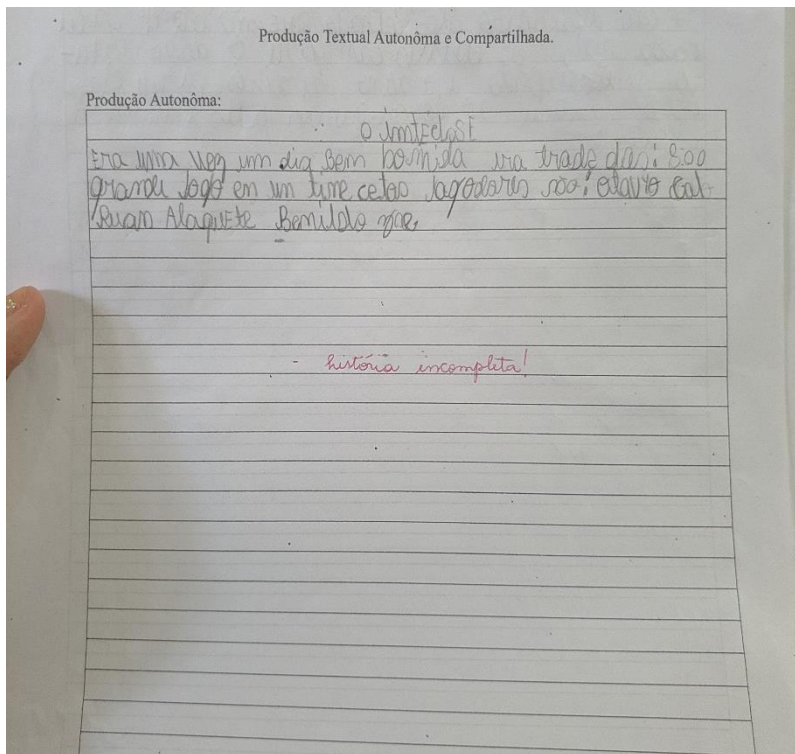 Produção Textual Autonôma e Compartilhada.
Produção Autonôma:
O
Era uma vez um dia Bem bonida ura trade das: 8:00
grande Jogo en un time cetao Jagodares são: otavio
Ruan Alaquete Benildo
- história incompleta!